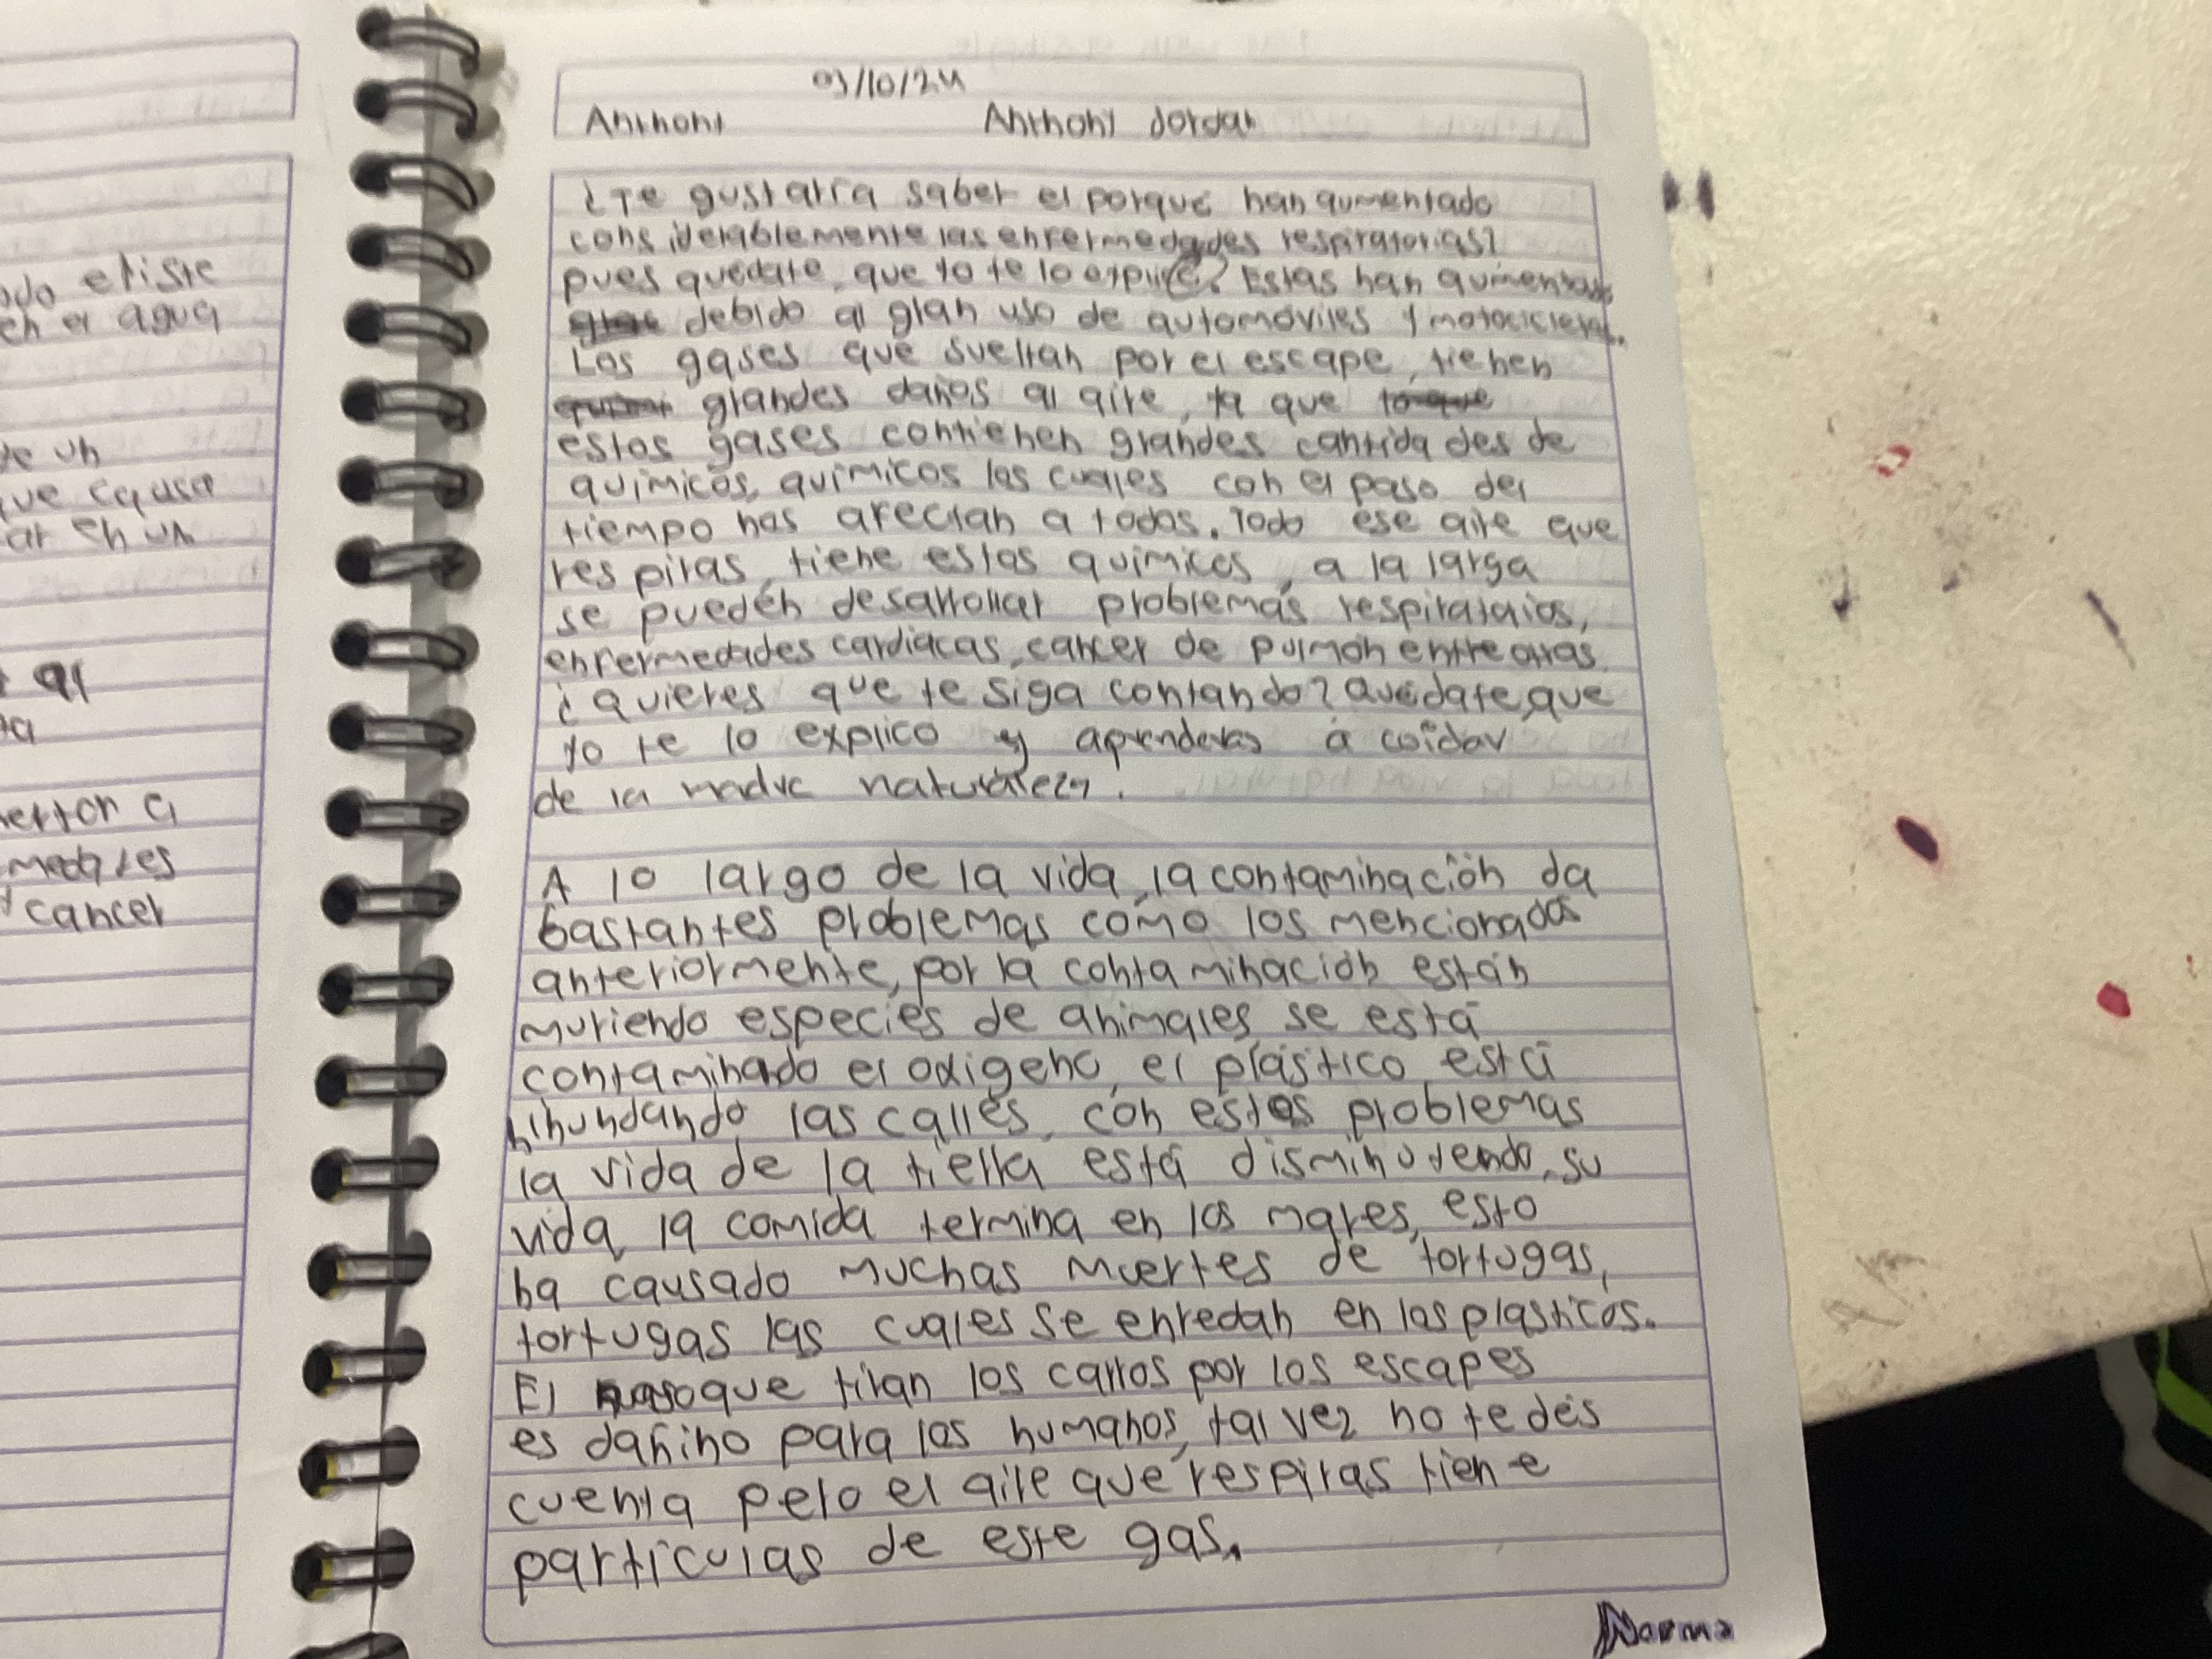 ado existe
en el agua
de un
que causa
ar en un
al
ta
nerton a
cancer
03/10/24
Anthony Anthony Jordan
¿Te gustaría saber el porqué han aumentado
considerablemente las enfermedades respiratorias?
pues quédate, que yo te lo explicó? Estas han aumentado
debido al gran uso de automóviles y motocicletas.
Los gases que sueltan por el escape, tienen
grandes daños al aire, ya que
estos gases contienen grandes cantidades de
químicos, químicos los cuales con el paso del
tiempo nos afectan a todos. Todo ese aire que
respiras, tiene estos químicos, a la larga
se pueden desarrollar problemas respiratorios,
enfermedades cardiacas, cancer de pulmón entre otras.
¿Quieres que te siga contando? Quédate, que
yo te lo explico y aprenderas a coidar
de la madre naturaleza.
A lo largo de la vida, la contaminación da
bastantes problemas como los mencionados
anteriormente, por la contaminación están
muriendo especies de animales, se está
contaminado el oxigeno, el plástico está
inundando las calles, con estos problemas
la vida de la tierra está disminuyendo, su
vida, la comida termina en los mares, esto
ha causado muchas muertes de tortugas,
tortugas las cuales se enredan en los plasticos.
El que tiran los carros por los escapes
es dañino para los humanos, tal vez no te des
cuenta pero el aire que respiras tiene
partículas de este gas.
Norma